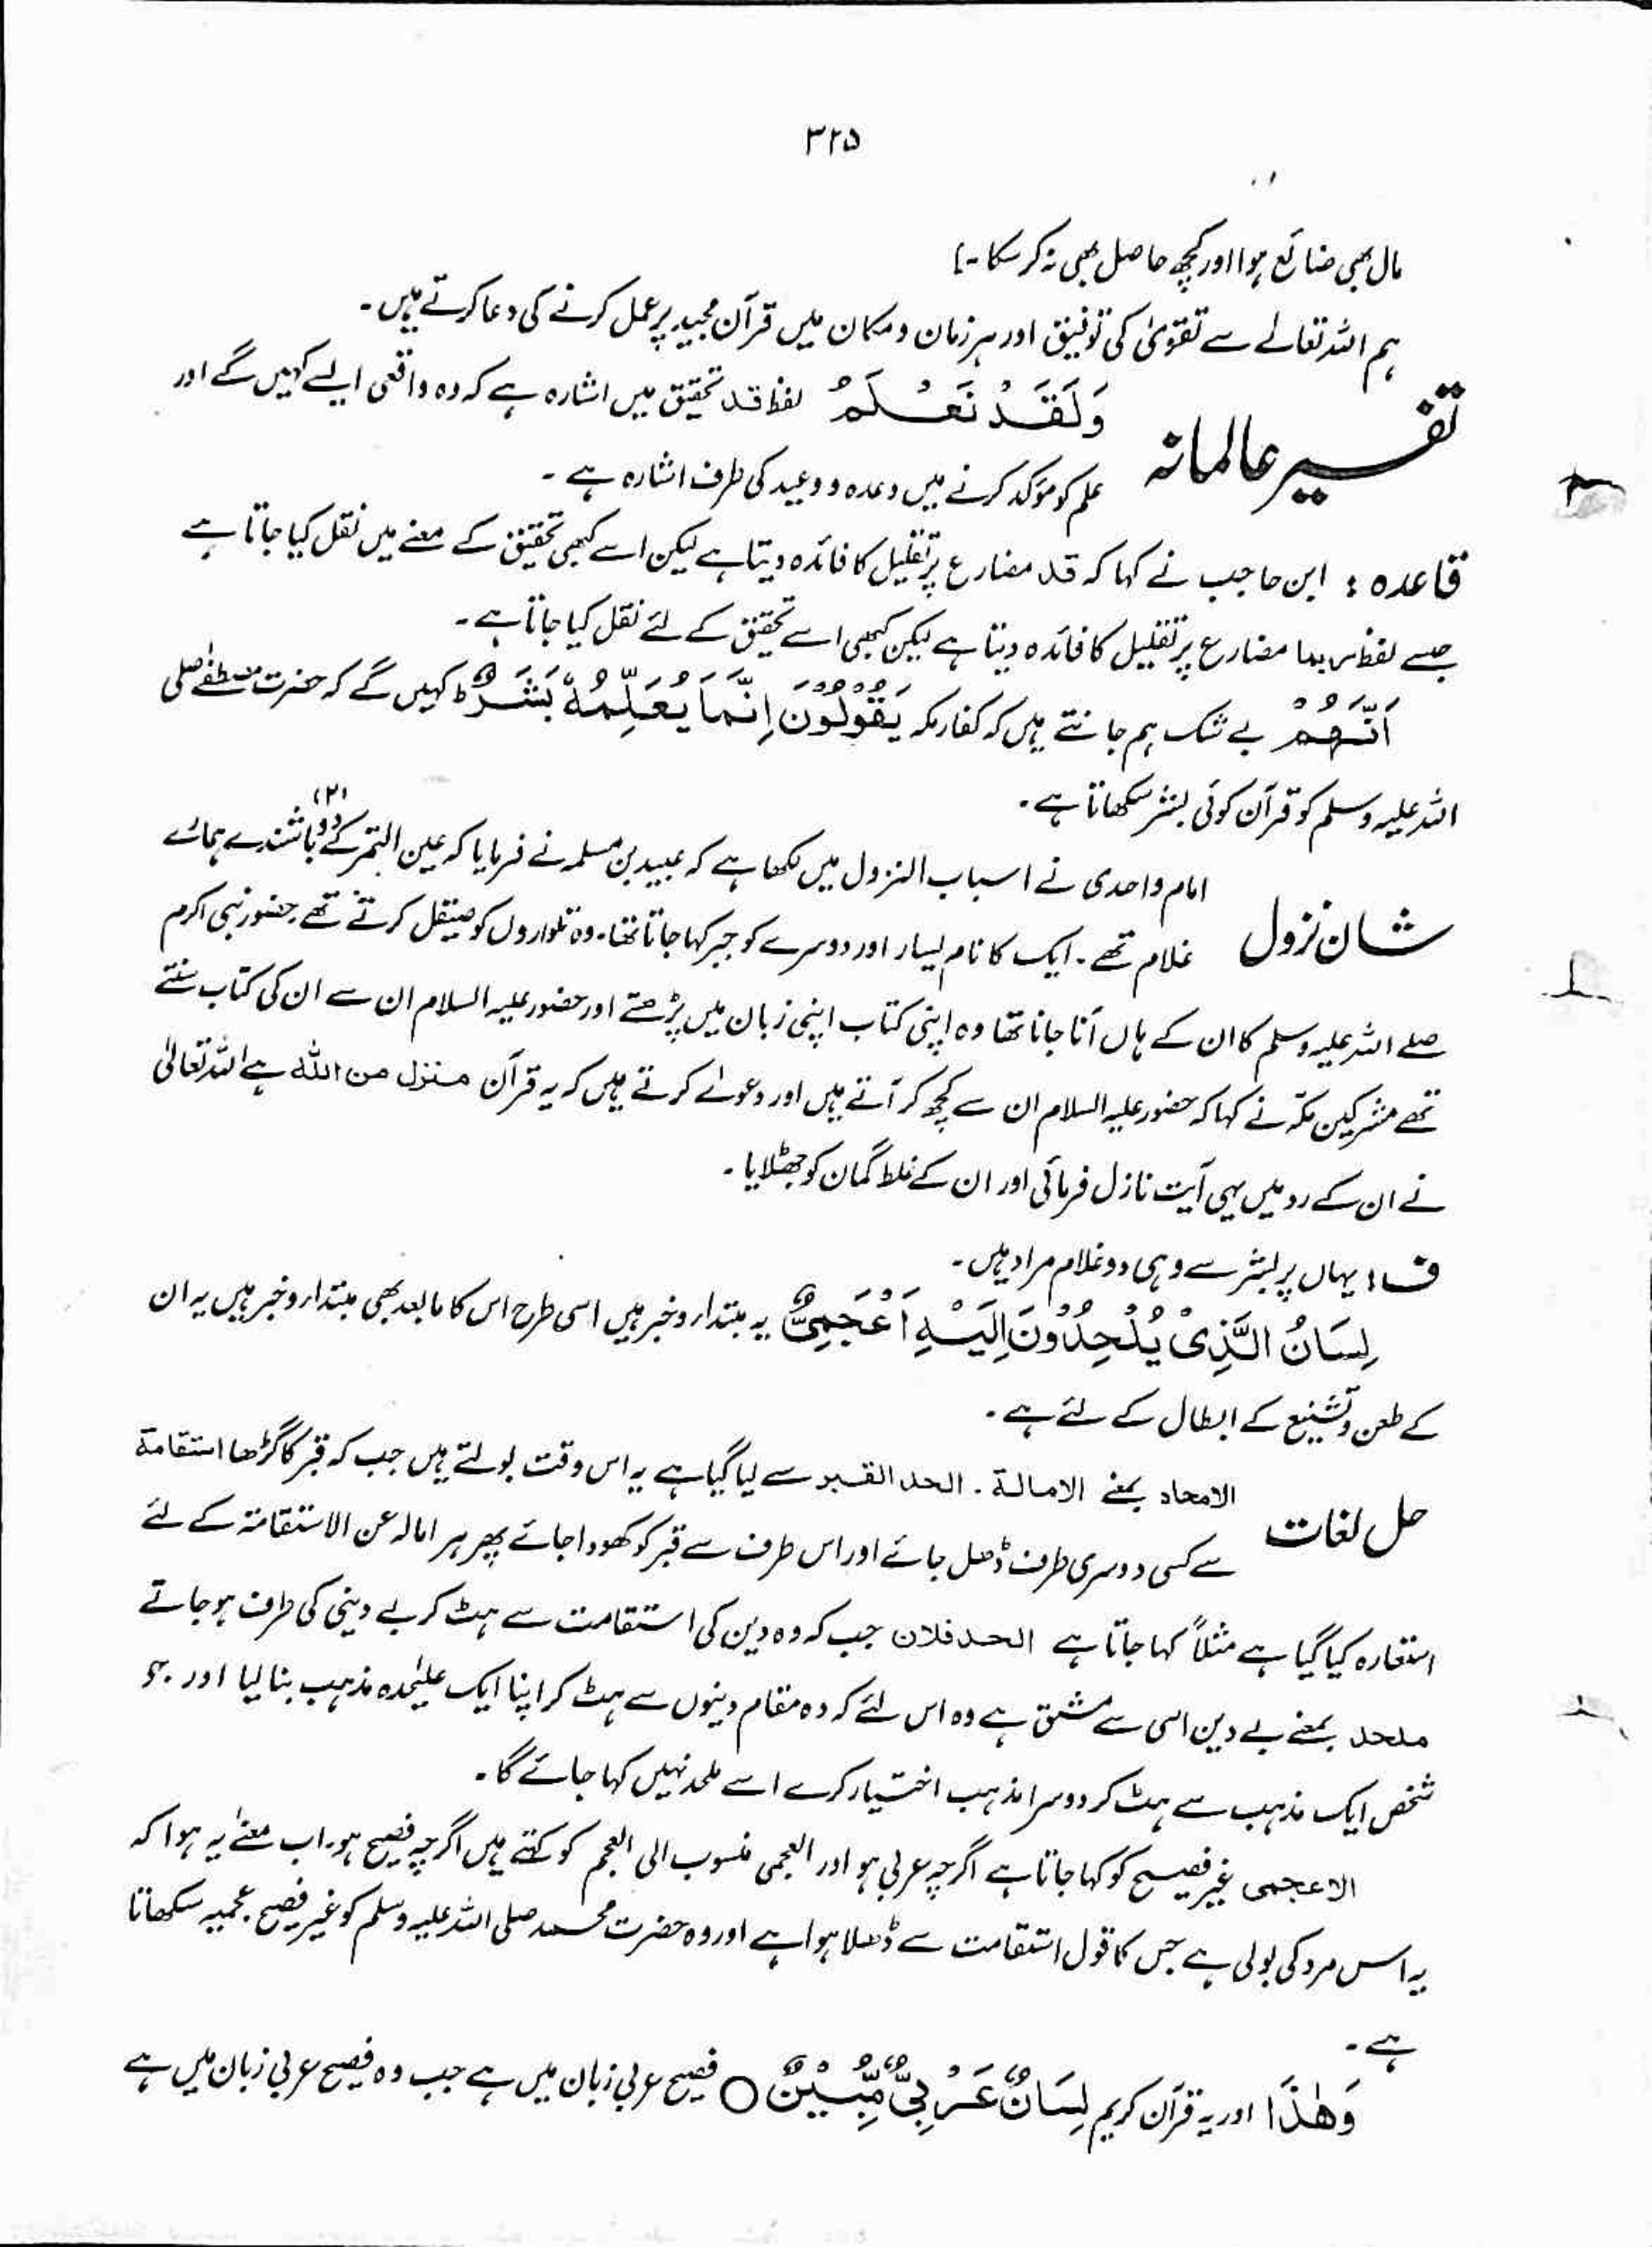 ۳۲۵
مال بھی ضائع ہوا اور کچھ حاصل بھی نہ کر سکا ۔)
ہم اللہ تعالےٰ سے تقویٰ کی توفیق اور ہر زمان و مکان میں قرآن مجید پر عمل کرنے کی دعا کرتے ہیں ۔
تفسیر عالمانہ وَلَقَدْ نَعْلَمُ لفظ قد تحقیق میں اشارہ ہے کہ وہ واقعی ایسے کہیں گے اور
علم کو مؤکد کرنے میں وعدہ و وعید کی طرف اشارہ ہے ۔
قاعدہ : ابن حاجب نے کہا کہ قد مضارع پر تقلیل کا فائدہ دیتا ہے لیکن اسے کبھی تحقیق کے معنے میں نقل کیا جاتا ہے
جیسے لفظ ربما مضارع پر تقلیل کا فائدہ دیتا ہے لیکن کبھی اسے تحقیق کے لئے نقل کیا جاتا ہے ۔
اَنَّهُمْ بے شک ہم جانتے ہیں کہ کفار مکہ یَقُوْلُوْنَ اِنَّمَا یُعَلِّمُهٗ بَشَرٌ ط کہیں گے کہ حضرت مصطفٰے صلی
اللہ علیہ وسلم کو قرآن کوئی بشر سکھاتا ہے ۔
امام واحدی نے اسباب النزول میں لکھا ہے کہ عبید بن مسلمہ نے فرمایا کہ عین التمر کے دو (۲) باشندے ہمارے
شان نزول غلام تھے ۔ ایک کا نام یسار اور دوسرے کو جبر کہا جاتا تھا ۔ وہ تلواروں کو صیقل کرتے تھے حضور نبی اکرم
صلے اللہ علیہ وسلم کا ان کے ہاں آنا جانا تھا وہ اپنی کتاب اپنی زبان میں پڑھتے اور حضور علیہ السلام ان سے ان کی کتاب سنتے
تھے مشرکین مکہ نے کہا کہ حضور علیہ السلام ان سے کچھ کر آتے ہیں اور دعوٰے کرتے ہیں کہ یہ قرآن منزل من اللہ ہے اللہ تعالیٰ
نے ان کے رد میں یہی آیت نازل فرمائی اور ان کے غلط گمان کو جھٹلایا ۔
ف : یہاں پر بشر سے وہی دو غلام مراد ہیں ۔
لِسَانُ الَّذِیْ یُلْحِدُوْنَ اِلَیْهِ اَعْجَمِیٌّ یہ مبتدار و خبر ہیں اسی طرح اس کا ما بعد بھی مبتدار و خبر ہیں یہ ان
کے طعن و تشنیع کے ابطال کے لئے ہے ۔
حل لغات الامحاد بمعنے الامالة ۔ الحد القبر سے لیا گیا ہے یہ اس وقت بولتے ہیں جب کہ قبر کا گڑھا استقامة
سے کسی دوسری طرف ڈھل جائے اور اس طرف سے قبر کو کھودا جائے پھر ہر امالہ عن الاستقامة کے لئے
استعارہ کیا گیا ہے مثلاً کہا جاتا ہے الحد فلان جب کہ وہ دین کی استقامت سے ہٹ کر بے دینی کی طرف ہو جاتے
ملحد بمعنے بے دین اسی سے مشتق ہے وہ اس لئے کہ وہ مقام دینوں سے ہٹ کر اپنا ایک علیٰحدہ مذہب بنا لیا اور جو
شخص ایک مذہب سے ہٹ کر دوسرا مذہب اختیار کرے اسے ملحد نہیں کہا جائے گا ۔
الاعجمی غیر فصیح کو کہا جاتا ہے اگرچہ عربی ہو اور العجمی منسوب الی العجم کو کہتے ہیں اگرچہ فصیح ہو ۔ اب معنےٰ یہ ہوا کہ
یہ اس مرد کی بولی ہے جس کا قول استقامت سے ڈھلا ہوا ہے اور وہ حضرت محمد صلی اللہ علیہ وسلم کو غیر فصیح عجمیہ سکھاتا
ہے ۔
وَهٰذَا اور یہ قرآن کریم لِسَانٌ عَرَبِیٌّ مُّبِیْنٌ ○ فصیح عربی زبان میں ہے جب وہ فصیح عربی زبان میں ہے